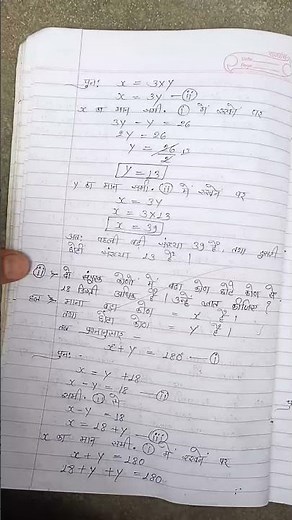 पुनः x = 3xy
x = 3y — ii
x का मान समी. i में रखने पर
3y - y = 26
2y = 26
y = 26/2 13
y = 13
y का मान समी. ii में रखने पर
x = 3y
x = 3x13
x = 39
अतः पहली बड़ी संख्या 39 है। तथा दूसरी
छोटी संख्या 13 है।
ii > दो संपूरक कोणों में बड़ा कोण छोटे कोण से
18 डिग्री अधिक है। उन्हें ज्ञात कीजिए?
हल > माना बड़ा कोण = x है।
तथा छोटा कोण = y है।
तब प्रश्नानुसार
x+y = 180 — i
पुनः
x = y +18
x - y = 18 — ii
समी. ii से
x-y = 18
x = 18+y — iii
x का मान समी. i में रखने पर
x + y = 180
18+y +y = 180